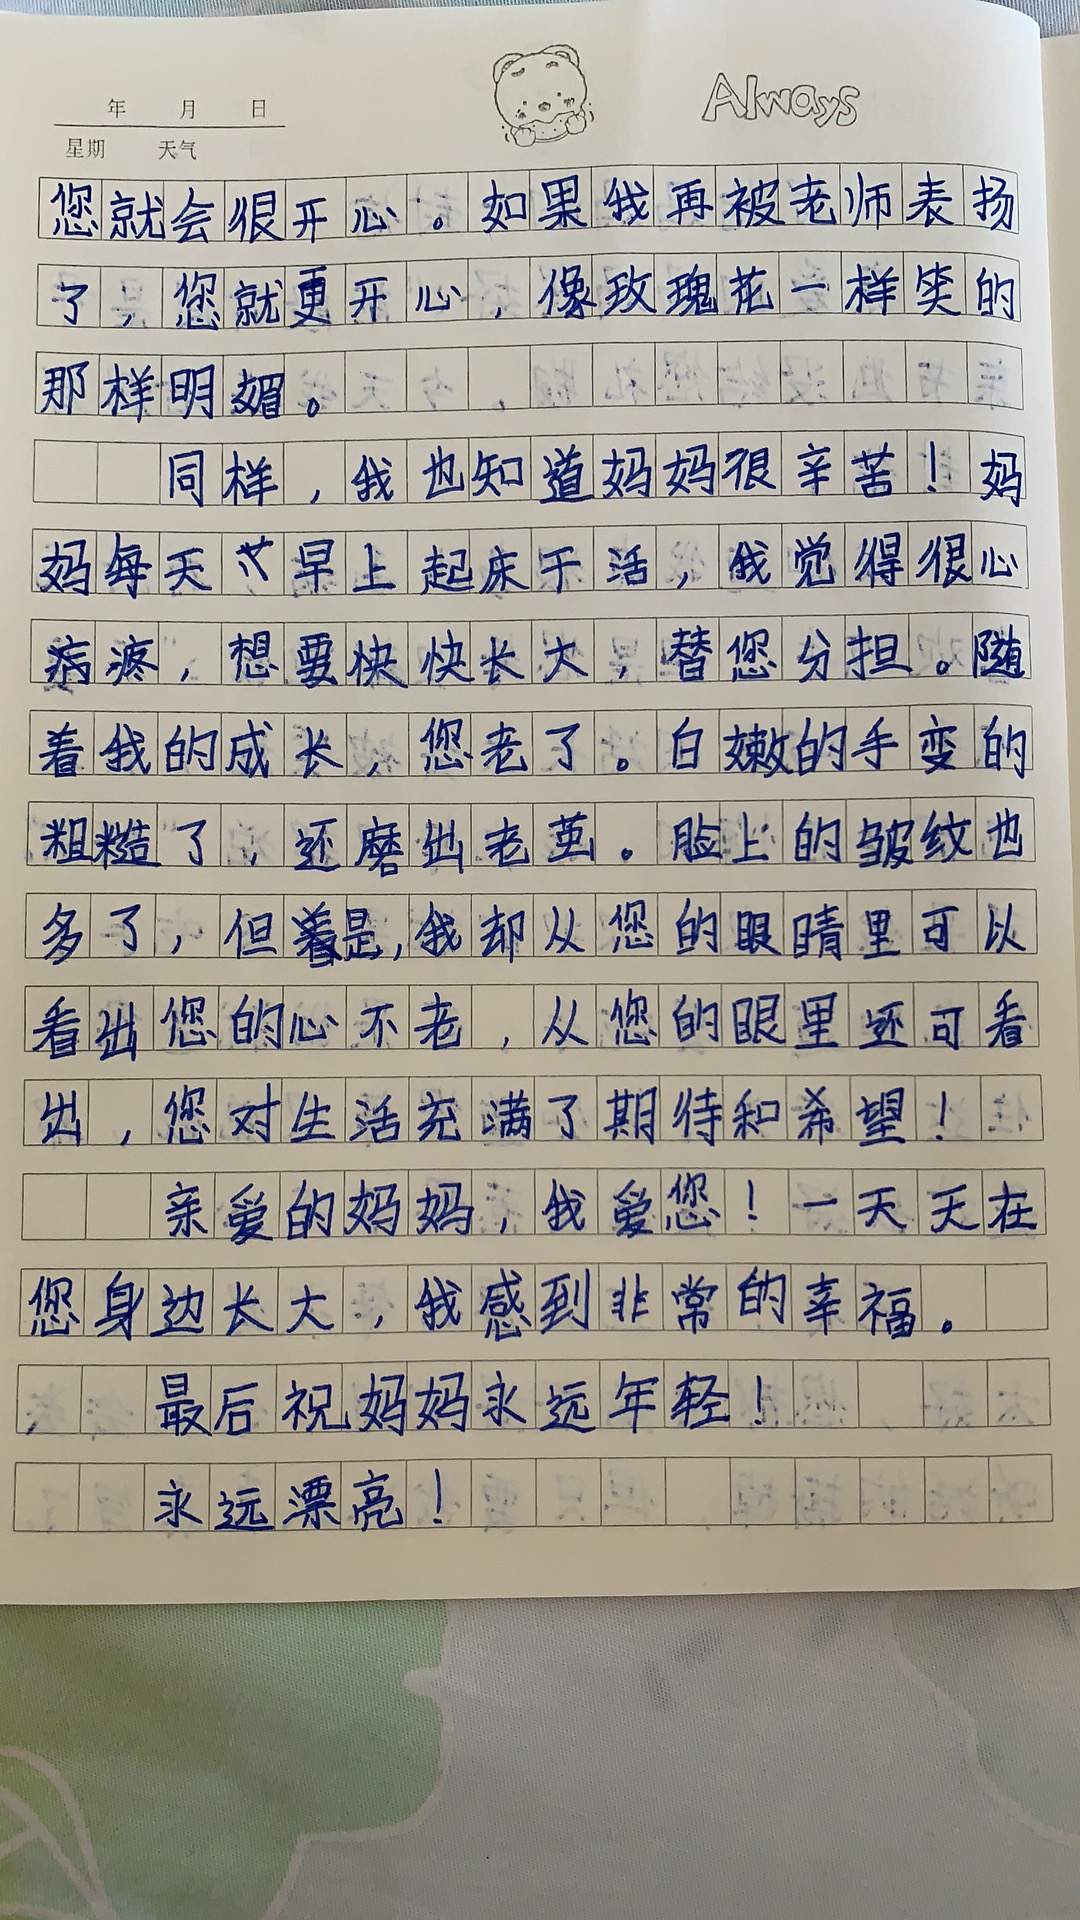 年 月 日
Always
星期 天气
您就会很开心。如果我再被老师表扬
了，您就更开心，像玫瑰花一样笑的
那样明媚。
同样，我也知道妈妈很辛苦！妈
妈每天早上起床干活，我觉得很心
病疼，想要快快长大，替您分担。随
着我的成长，您老了。白嫩的手变的
粗糙了，还磨出老茧。脸上的皱纹也
多了，但是，我却从您的眼睛里可以
看出您的心不老，从您的眼里还可看
出，您对生活充满了期待和希望！
亲爱的妈妈，我爱您！一天天在
您身边长大，我感到非常的幸福。
最后祝妈妈永远年轻！
永远漂亮！